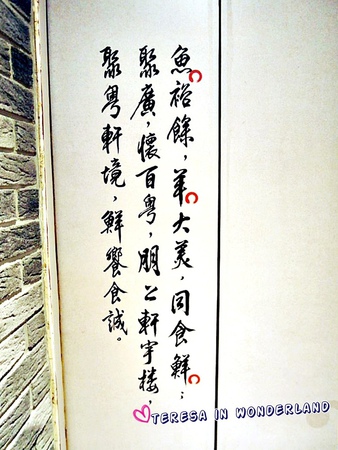 魚裕餘，羊大美，同食鮮；
聚廣，懷百粵，朋公軒宇樓，
聚粵軒境，鮮饗食誠。
TERESA IN WONDERLAND